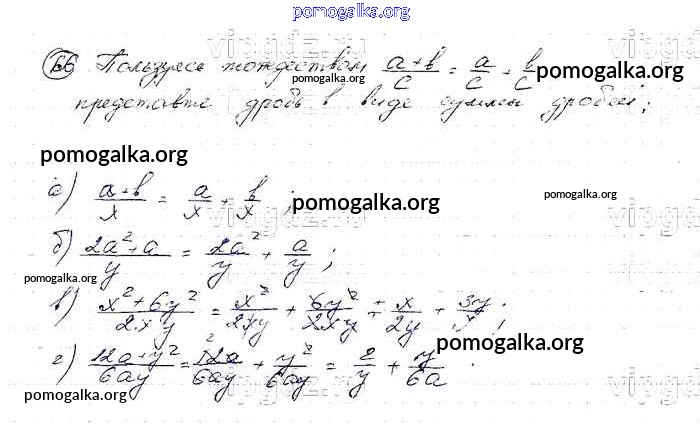 pomogalka.org
66 Пользуясь тождеством (a+b)/c = a/c + b/c pomogalka.org
представте дробь в виде суммы дробей;
pomogalka.org
pomogalka.org
а) (a+b)/x = a/x + b/x ; pomogalka.org pomogalka.org
vipgdz.ru
б) (2a²+a)/y = 2a²/y + a/y ;
pomogalka.org
в) (x²+6y²)/2xy = x²/2xy + 6y²/2xy = x/2y + 3y/x ;
г) (12a+y²)/6ay = 12a/6ay + y²/6ay = 2/y + y/6a . pomogalka.org
pomogalka.org